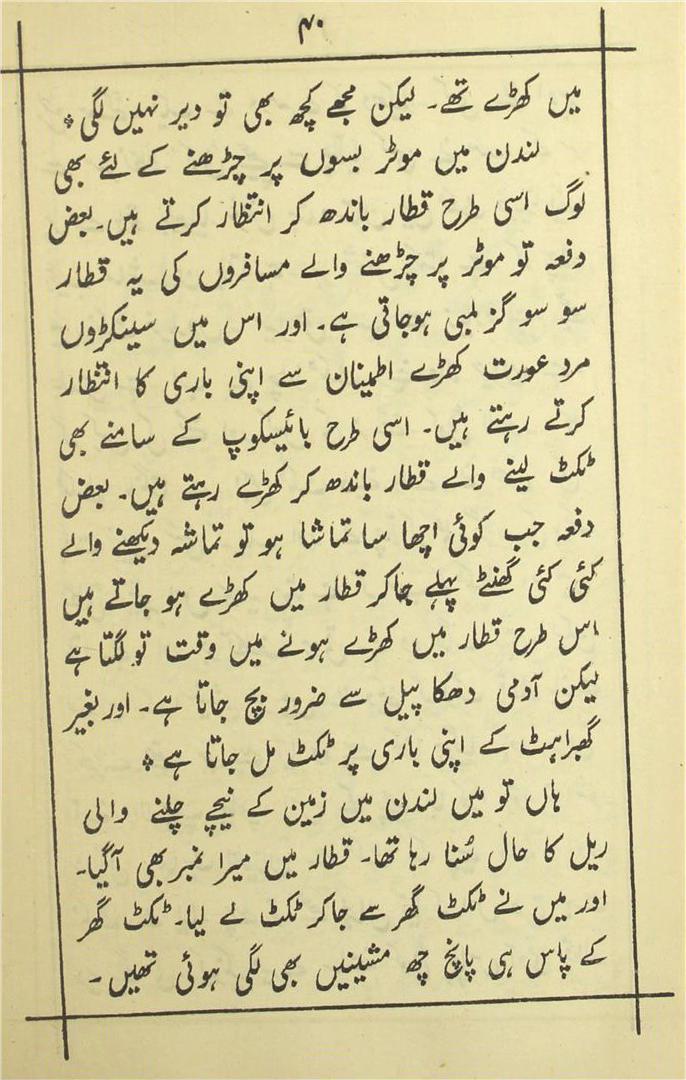 ۴۰
میں کھڑے تھے۔ لیکن مجھے کچھ بھی تو دیر نہیں لگی *
لندن میں موٹر بسوں پر چڑھنے کے لئے بھی
لوگ اسی طرح قطار باندھ کر انتظار کرتے ہیں۔ بعض
دفعہ تو موٹر پر چڑھنے والے مسافروں کی یہ قطار
سو سو گز لمبی ہوجاتی ہے۔ اور اس میں سینکڑوں
مرد عورت کھڑے اطمینان سے اپنی باری کا انتظار
کرتے رہتے ہیں۔ اسی طرح بائیسکوپ کے سامنے بھی
ٹکٹ لینے والے قطار باندھ کر کھڑے رہتے ہیں۔ بعض
دفعہ جب کوئی اچھا سا تماشا ہو تو تماشہ دیکھنے والے
کئی کئی گھنٹے پہلے جاکر قطار میں کھڑے ہو جاتے ہیں
اس طرح قطار میں کھڑے ہونے میں وقت تو لگتا ہے
لیکن آدمی دھکا پیل سے ضرور بچ جاتا ہے۔ اور بغیر
گھبراہٹ کے اپنی باری پر ٹکٹ مل جاتا ہے *
ہاں تو میں لندن میں زمین کے نیچے چلنے والی
ریل کا حال سُنا رہا تھا۔ قطار میں میرا نمبر بھی آگیا۔
اور میں نے ٹکٹ گھر سے جاکر ٹکٹ لے لیا۔ ٹکٹ گھر
کے پاس ہی پانچ چھ مشینیں بھی لگی ہوئی تھیں۔